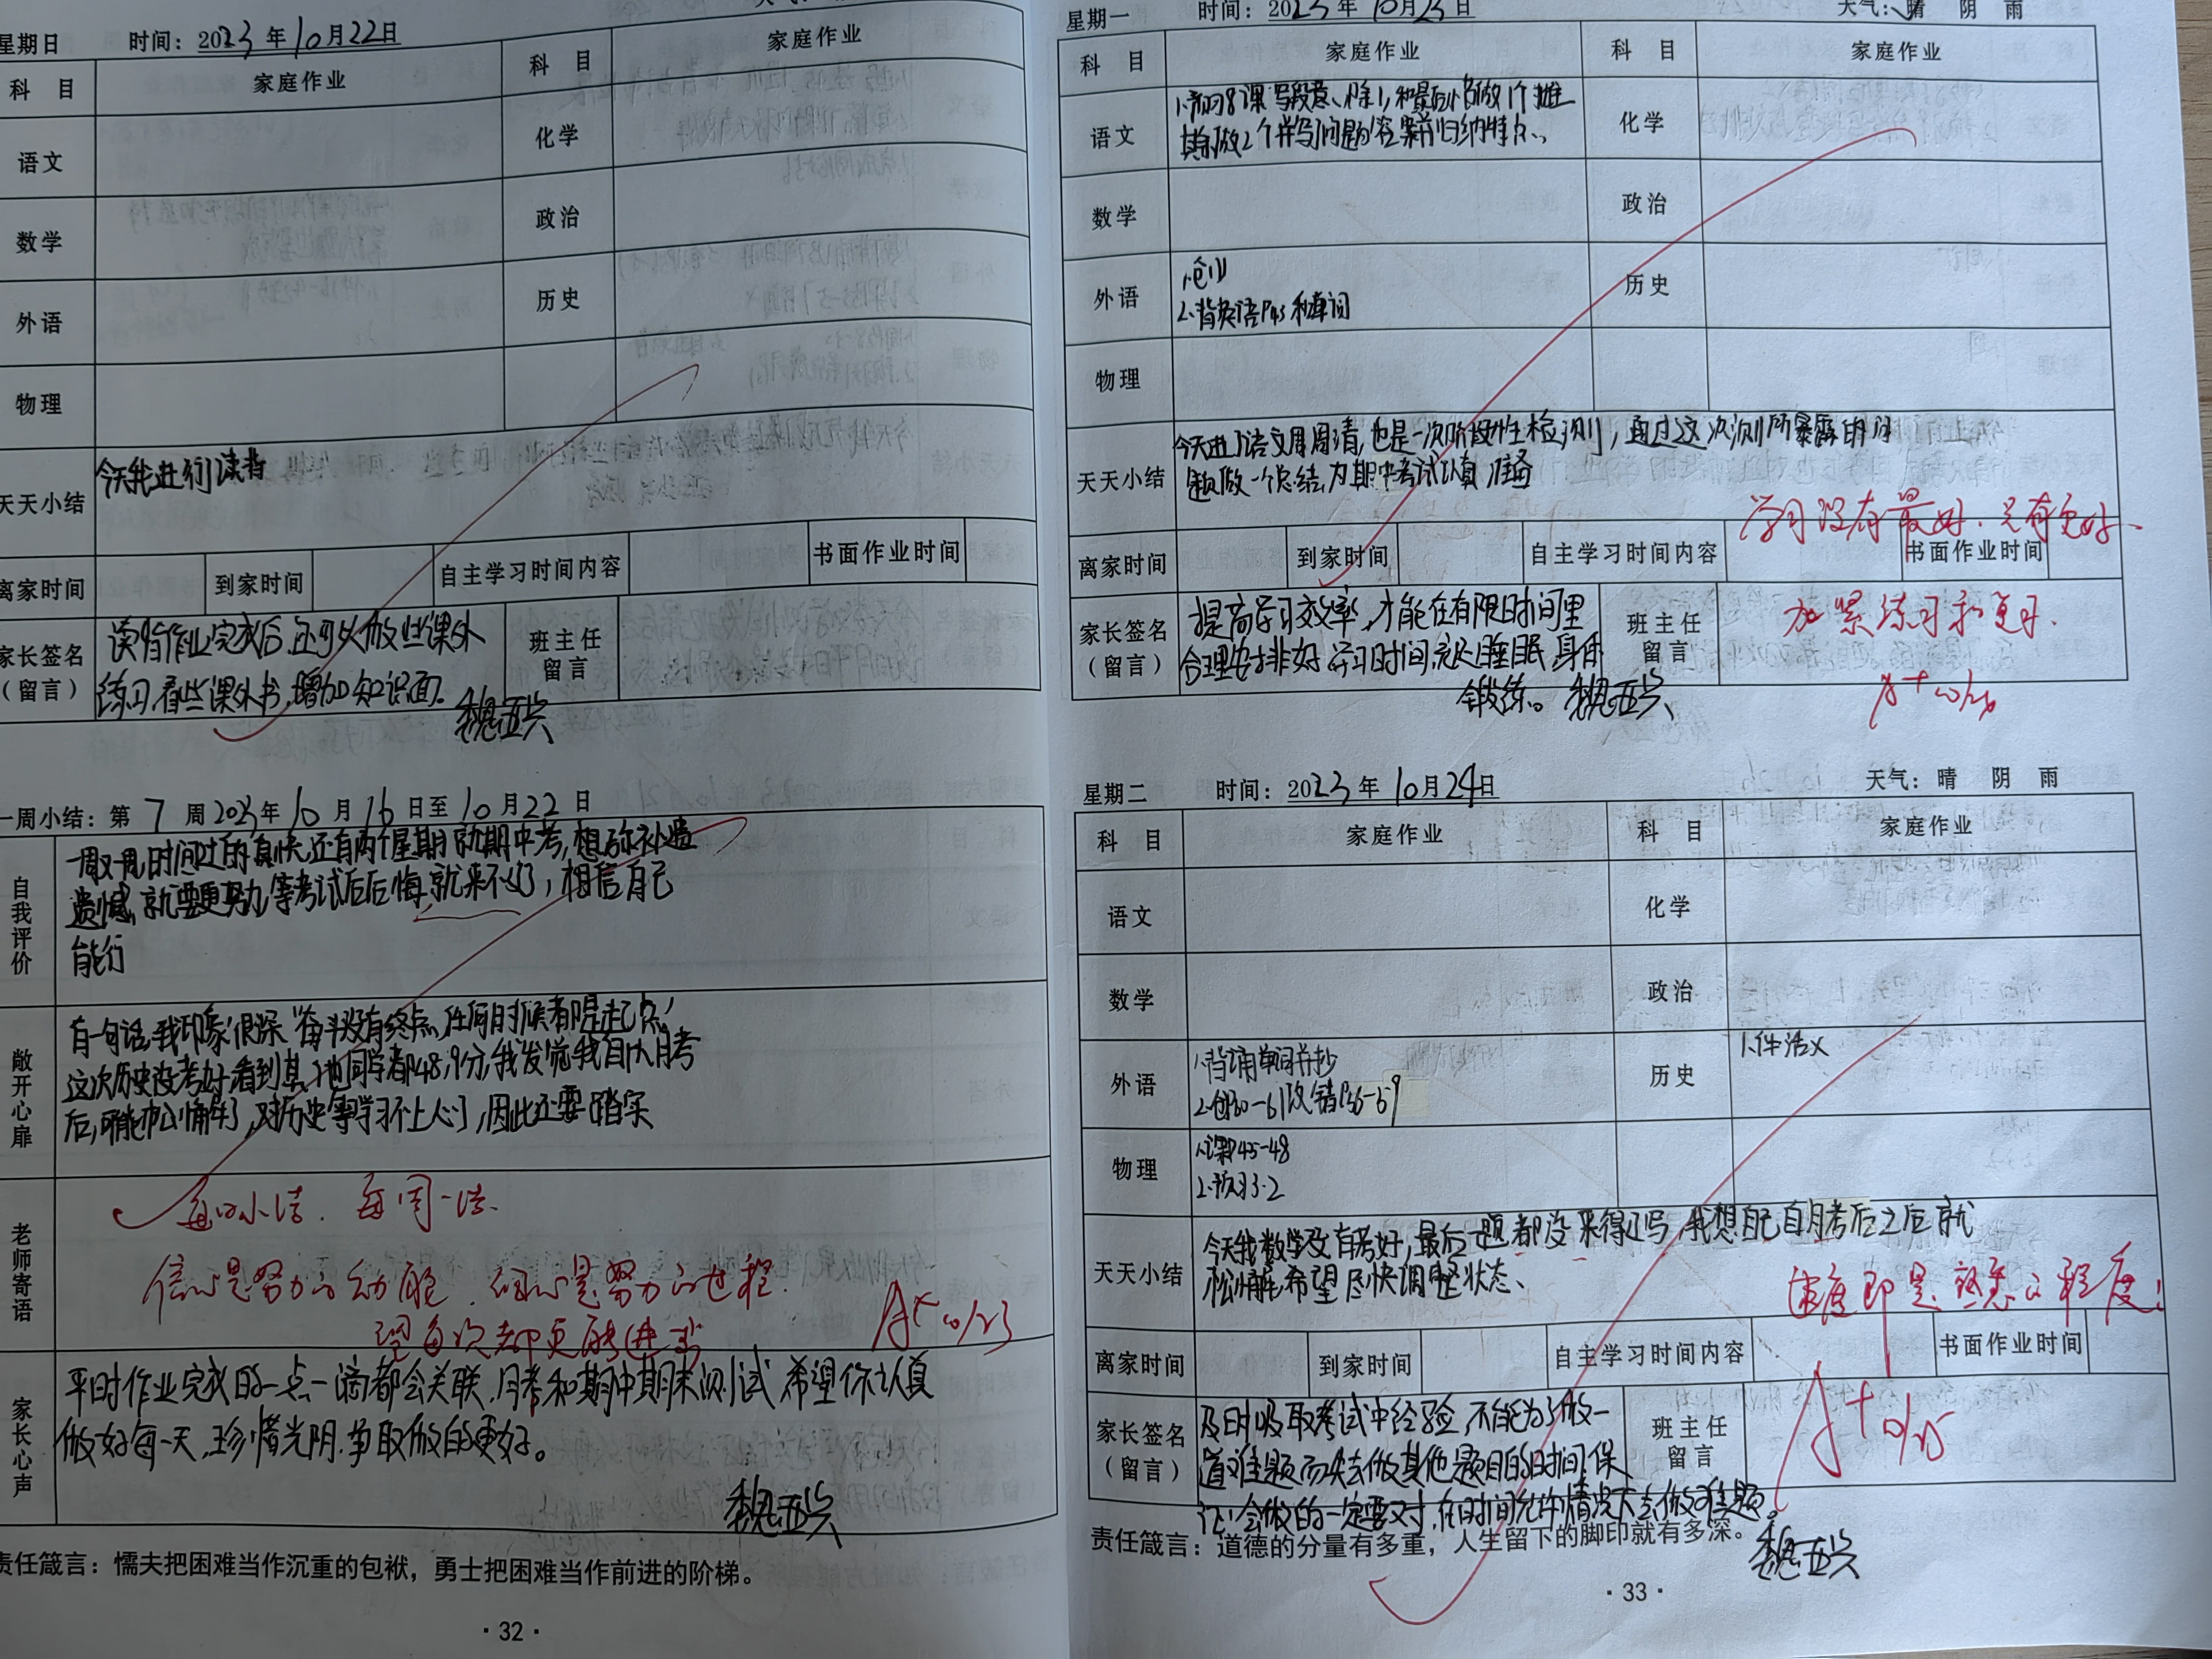 星期日 时间：2023年10月22日
科目 家庭作业 科目 家庭作业
语文 化学
数学 政治
外语 历史
物理
天天小结 今天我进行读书
离家时间 到家时间 自主学习时间内容 书面作业时间
家长签名（留言） 读书作业完成后，还可以做些课外
练习，看些课外书，增加知识面。
班主任留言
一周小结：第7周2023年10月16日至10月22日
自我评价
一周又一周，时间过的真快，还有两个星期就期中考，想弥补遗
遗憾，就要更努力，等考试后后悔就来不及了，相信自己
能行
敞开心扉
有一句话，我印象很深“奋斗没有终点，任何时候都是起点”
这次历史没考好，看到其他同学都48,9分，我发觉我自从月考
后，可能松懈了，对历史等学习不上心了，因此还要踏实
老师寄语
每日小结，每周一结.
信心是努力的动能，细心是努力的过程.
望每次都更能进步
A+ 10/23
家长心声
平时作业完成的一点一滴都会关联，月考和期中期末测试，希望你认真
做好每一天，珍惜光阴，争取做的更好。
责任箴言：懦夫把困难当作沉重的包袱，勇士把困难当作前进的阶梯。
·32·
星期一 时间：2023年10月23日 天气：晴 阴 雨
科目 家庭作业 科目 家庭作业
语文 1.预习8课 写段意、除1,和最后 做1个推
其余做2个并写问题答案前归纳特点、
化学
数学 政治
外语
2.背英语P43和单词
历史
物理
天天小结 今天进了语文周周清，也是一次阶段性检测，通过这次测所暴露的问
题做一个总结，为期中考试认真准备
学习没有最好，只有更好、
离家时间 到家时间 自主学习时间内容 书面作业时间
家长签名（留言） 提高学习效率，才能在有限时间里
合理安排好学习时间，充足睡眠，身体
锻练。
班主任留言 加紧练习和复习.
A+ 10/24
星期二 时间：2023年10月24日 天气：晴 阴 雨
科目 家庭作业 科目 家庭作业
语文 化学
数学 政治
外语 1.背诵单词并抄
2.创P60-61改错P56-59
历史 1.作活义
物理 1.课P45-48
2.预习3.2
天天小结 今天我数学没有考好，最后一题都没来得及写，我想自己自月考后之后就
松懈，希望尽快调整状态、
速度即是熟悉的程度！
离家时间 到家时间 自主学习时间内容 书面作业时间
家长签名（留言） 及时吸取考试中经验，不能为了做一
道难题而失去做其他题目的时间，保
证：会做的一定要对，在时间允许情况下去做难题。
班主任留言 A+ 10/25
责任箴言：道德的分量有多重，人生留下的脚印就有多深。
·33·